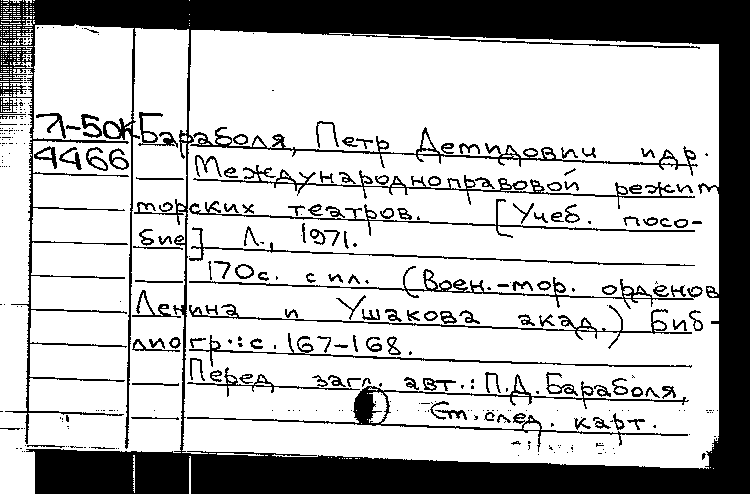 Л-50к Бараболя, Петр Демидович и др.
4466 Международноправовой режим
морских театров. [Учеб. посо-
бие] Л., 1971.
170с. с ил. (Воен.-мор. орденов
Ленина и Ушакова акад.) Биб-
лиогр.: с. 167-168.
Перед загл. авт.: П.Д. Бараболя,
См. след. карт.